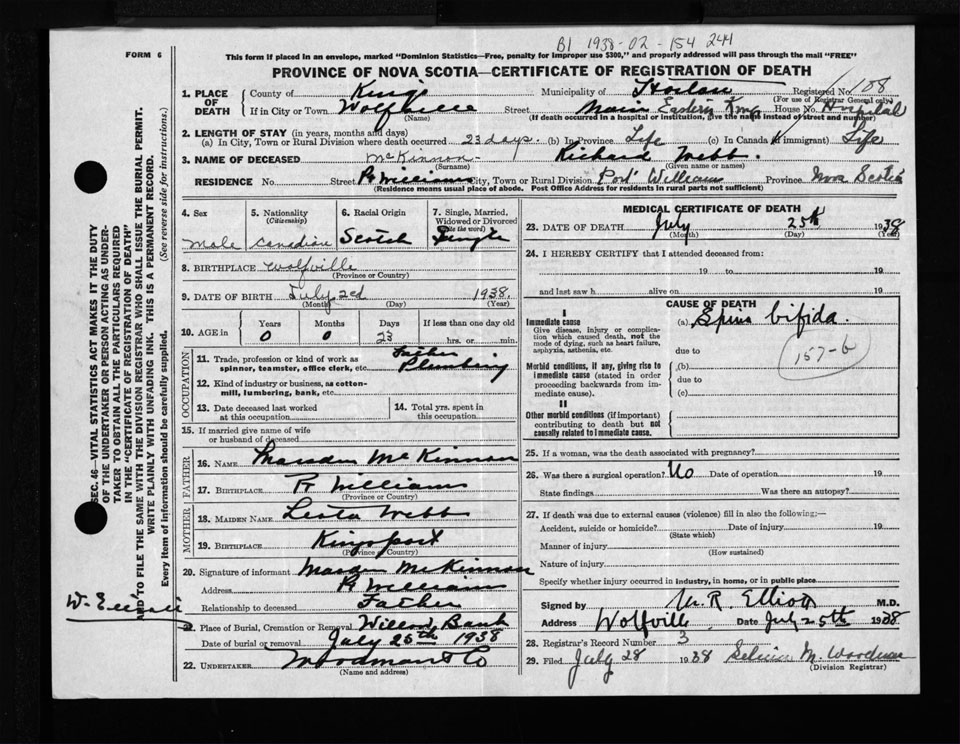 B1 1938-02-154 244
FORM 6
This form if placed in an envelope, marked "Dominion Statistics—Free, penalty for improper use $300," and properly addressed will pass through the mail "FREE"
PROVINCE OF NOVA SCOTIA—CERTIFICATE OF REGISTRATION OF DEATH
1. PLACE OF DEATH
County of Kings Municipality of Horton Registered No. 108
(For use of Registrar General only)
If in City or Town Wolfville Street Main Eastern Kings House No. Hospital
(Name) (If death occurred in a hospital or institution, give the name instead of street and number)
2. LENGTH OF STAY (in years, months and days)
(a) In City, Town or Rural Division where death occurred 23 days. (b) In Province Life (c) In Canada (if immigrant) Life
3. NAME OF DECEASED McKinnon Richard Webb.
(Surname) (Given name or names)
RESIDENCE No. Street Pt Williams City, Town or Rural Division Port William Province Nova Scotia
(Residence means usual place of abode. Post Office Address for residents in rural parts not sufficient)
4. Sex Male
5. Nationality (Citizenship) Canadian
6. Racial Origin Scotch
7. Single, Married, Widowed or Divorced (Write the word) Single
8. BIRTHPLACE Wolfville
(Province or Country)
9. DATE OF BIRTH July 2ed 1938.
(Month) (Day) (Year)
10. AGE in Years Months Days If less than one day old
0 0 23 hrs. or min.
OCCUPATION
11. Trade, profession or kind of work as spinner, teamster, office clerk, etc. Father Plumbing
12. Kind of industry or business, as cotton-mill, lumbering, bank, etc.
13. Date deceased last worked at this occupation
14. Total yrs. spent in this occupation
15. If married give name of wife or husband of deceased
FATHER
16. NAME Marsden McKinnon
17. BIRTHPLACE Pt Williams
(Province or Country)
MOTHER
18. MAIDEN NAME Leota Webb
19. BIRTHPLACE Kingsport
(Province or Country)
20. Signature of informant Marsden McKinnon
Address Pt William
Relationship to deceased Father
21. Place of Burial, Cremation or Removal Willow Bank
Date of burial or removal July 26th 1938
22. UNDERTAKER Woodman & Co
(Name and address)
MEDICAL CERTIFICATE OF DEATH
23. DATE OF DEATH July 25th 1938
(Month) (Day) (Year)
24. I HEREBY CERTIFY that I attended deceased from:
19 to 19
and last saw h alive on 19
CAUSE OF DEATH
I
Immediate cause
Give disease, injury or complication which caused death, not the mode of dying, such as heart failure, asphyxia, asthenia, etc.
(a) Spina bifida.
due to 157-b
Morbid conditions, if any, giving rise to immediate cause (stated in order proceeding backwards from immediate cause).
(b)
due to
(c)
II
Other morbid conditions (if important) contributing to death but not causally related to immediate cause.
25. If a woman, was the death associated with pregnancy?
26. Was there a surgical operation? No Date of operation 19
State findings Was there an autopsy?
27. If death was due to external causes (violence) fill in also the following:—
Accident, suicide or homicide? Date of injury 19
(State which)
Manner of injury
(How sustained)
Nature of injury
Specify whether injury occurred in industry, in home, or in public place
Signed by M.D.
Address Wolfville Date July 25th 1938
28. Registrar's Record Number 3
29. Filed July 28 1938 M. Woodman
(Division Registrar)
SEC. 46—VITAL STATISTICS ACT MAKES IT THE DUTY
OF THE UNDERTAKER OR PERSON ACTING AS UNDER-
TAKER TO OBTAIN ALL THE PARTICULARS REQUIRED
IN THE "CERTIFICATE OF REGISTRATION OF DEATH"
AND TO FILE THE SAME WITH THE DIVISION REGISTRAR WHO SHALL ISSUE THE BURIAL PERMIT.
WRITE PLAINLY WITH UNFADING INK. THIS IS A PERMANENT RECORD.
Every item of information should be carefully supplied. (See reverse side for instructions.)